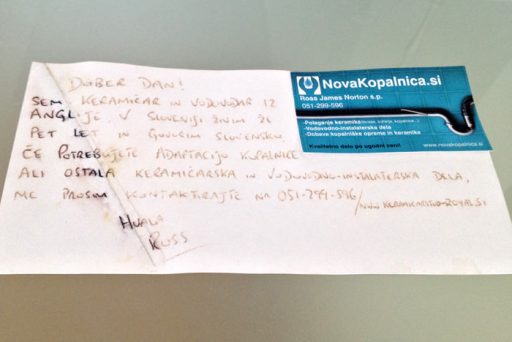 DOBER DAN!
SEM KERAMIČAR IN VODOVODAR IZ
ANGLIJE. V SLOVENIJI ŽIVIM ŽE
PET LET IN GOVORIM SLOVENSKO.
ČE POTREBUJETE ADAPTACIJO KOPALNICE
ALI OSTALA KERAMIČARSKA IN VODOVODNO-INSTALATERSKA DELA,
ME PROSIM KONTAKTIRAJTE NA 051-299-596/WWW.KERAMICARSTVO-ROYAL.SI
HVALA
ROSS
NovaKopalnica.si
Ross James Norton s.p.
051-299-596
-Polaganje keramike (terase, kuhinje, kopalnice...)
-Vodovodno-instalaterska dela
-Dobava kopalniške opreme in keramike
Kvalitetno delo po ugodni ceni!
www.novakopalnica.si